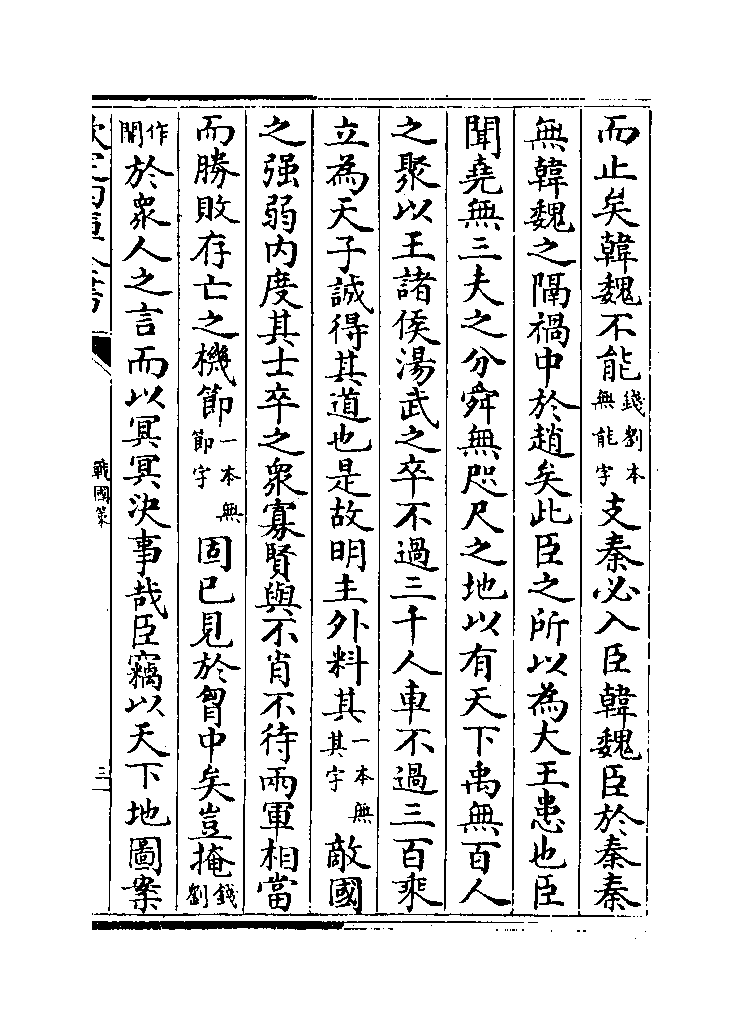 而止矣韓魏不能錢劉本無能字支秦必入臣韓魏臣於秦秦
無韓魏之隔禍中於趙矣此臣之所以為大王患也臣
聞堯無三夫之分舜無咫尺之地以有天下禹無百人
之聚以王諸侯湯武之卒不過三千人車不過三百乘
立為天子誠得其道也是故明主外料其一本無其字敵國
之强弱内度其士卒之衆寡賢與不肖不待兩軍相當
而勝敗存亡之機節一本無節字固已見於胷中矣豈掩錢劉
作闇於衆人之言而以冥冥決事哉臣竊以天下地圖案
欽定四庫全書
戰國策